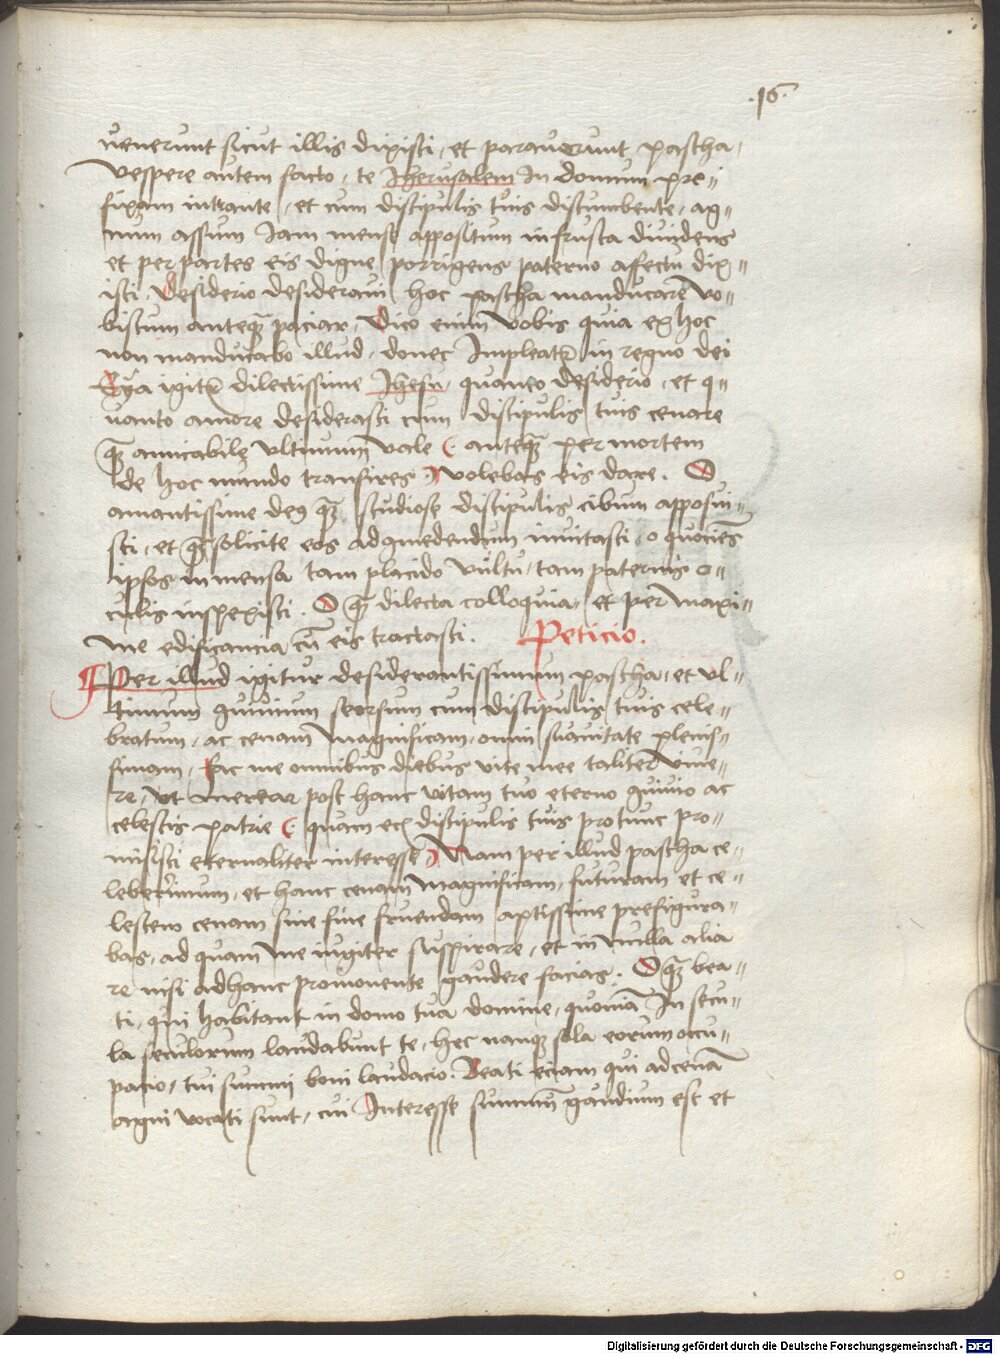 .16.
venerunt sicut illis dixisti, et paraverunt pascha,
Vespere autem facto, te Jherusalem In domum pre-
fixam intrante, et cum discipulis tuis discumbente, ag-
num assum Iam mense appositum in frusta dividens
et per partes eis digne porrigens paterno affectu dix-
isti. Desiderio desideravi hoc pascha manducare vo-
biscum anteqȝ paciar, Dico enim vobis quia ex hoc
non manducabo illud, donec Impleatᷣ in regno dei
Eya igitᷣ dilectissime Jhesu, quanto desiderio, et q-
uanto amore desiderasti cum discipulis tuis cenare
qȝ amicabile vltimum vale (. anteqȝ per mortem
de hoc mundo transires .) volebas eis dare. O
amantissime deꝰ qȝ studiose discipulis cibum apposui-
sti, et qȝ solicite eos ad ꝯmedendum invitasti, o quociēs
ipsos in mensa tam placido vultu, tam paternis o-
culis inspexisti. O qȝ dilecta colloquia, et per maxi-
me edificancia cū eis tractasti. Peticio.
Per illud igitur desiderantissimum pascha, et vl-
timum ꝯuiuium seorsum cum discipulis tuis cele-
bratum, ac cenam magnificam, omni suavitate plenis-
simam, fac me omnibus diebus vite mee taliter vive-
re, vt merear post hanc vitam tuo eterno ꝯuiuio ac
celestis patrie (. quam eciā discipulis tuis pro tunc pro-
misisti eternaliter interesse .) Nam per illud pascha ce-
leberimum, et hanc cenam magnificam, futuram et ce-
lestem cenam sine fine fruendam aptissime prefigura-
bas, ad quam me iugiter suspirare, et in nulla alia
re nisi ad hanc promovente gaudere facias. O qȝ bea-
ti, qui habitant in domo tua domine, quoniā In secu-
la seculorum laudabunt te, hec nanqȝ sola eorum occu-
pacio, tui summi boni laudacio. Beati eciam qui ad cenā
agni vocati sunt, cui Interesse summū gaudium est et
Digitalisierung gefördert durch die Deutsche Forschungsgemeinschaft - DFG